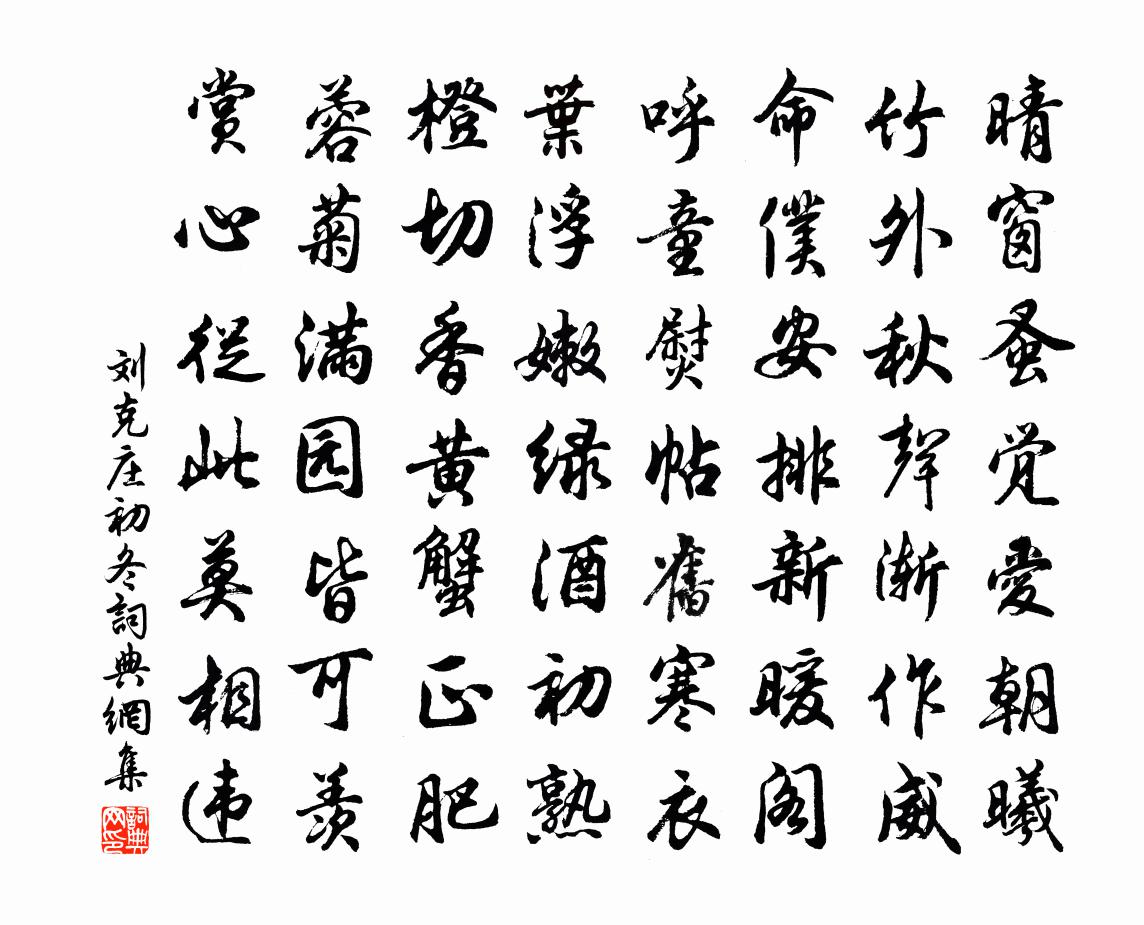 晴窗蚤觉愛朝曦
竹外秋聲漸作威
命僕安排新暖阁
呼童熨帖舊寒衣
葉浮嫩绿酒初熟
橙切香黄蟹正肥
蓉菊满园皆可羨
赏心從此莫相违
刘克庄初冬詞典網集
詞典网印